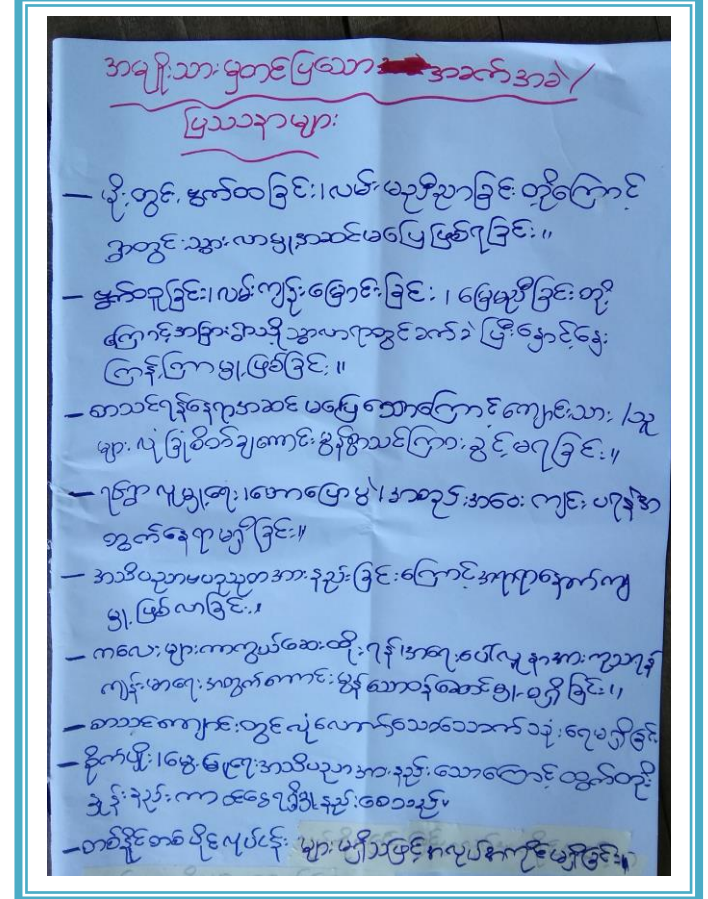 အမျိုးသားမှတင်ပြသော အခက်အခဲ/
ပြဿနာများ
– မိုးတွင်း၊ နွက်ထခြင်း၊ လမ်းမညီညာခြင်းတို့ကြောင့်
ရွာတွင်းသွားလာမှုအဆင်မပြေဖြစ်ရခြင်း။
– နွက်ထူခြင်း၊ လမ်းကျဉ်းမြောင်းခြင်း၊ မြေမညီခြင်းတို့
ကြောင့်အခြားရွာသို့သွာလာရာတွင်ခက်ခဲပြီးနှောင့်နှေး
ကြန့်ကြာမှုဖြစ်ခြင်း။
– စာသင်ရန်နေရာအဆင်မပြေသောကြောင့်ကျောင်းသား/သူ
များလုံခြုံစိတ်ချကောင်းမွန်စွာသင်ကြားခွင့်မရခြင်း။
– ရပ်ရွာလူမှုရေး၊ ဟောပြောပွဲ၊ အစည်းအဝေးကျင်းပရန်အ
တွက်နေရာမရှိခြင်း။
– အသိပညာဗဟုသုတအားနည်းခြင်းကြောင့်အရာရာနောက်ကျ
မှုဖြစ်လာခြင်း။
– ကလေးများကာကွယ်ဆေးထိုးရန်၊ အရေးပေါ်လူနာအားကုသရန်
ကျန်းမာရေးအတွက်ကောင်းမွန်သောဝန်ဆောင်မှုမရှိခြင်း။
– စာသင်ကျောင်းတွင်လုံလောက်သောသောက်သုံးရေမရှိခြင်း
– စိုက်ပျိုး၊ မွေးမြူရေးအသိပညာအားနည်းသောကြောင့်ထွက်တိုး
နှုန်းနည်းကာ ဝင်ငွေရရှိမှုနည်းစေသည်။
– တစ်နိုင်တစ်ပိုင်လုပ်ငန်းများမရှိသဖြင့်အလုပ်အကိုင်မရှိခြင်း။